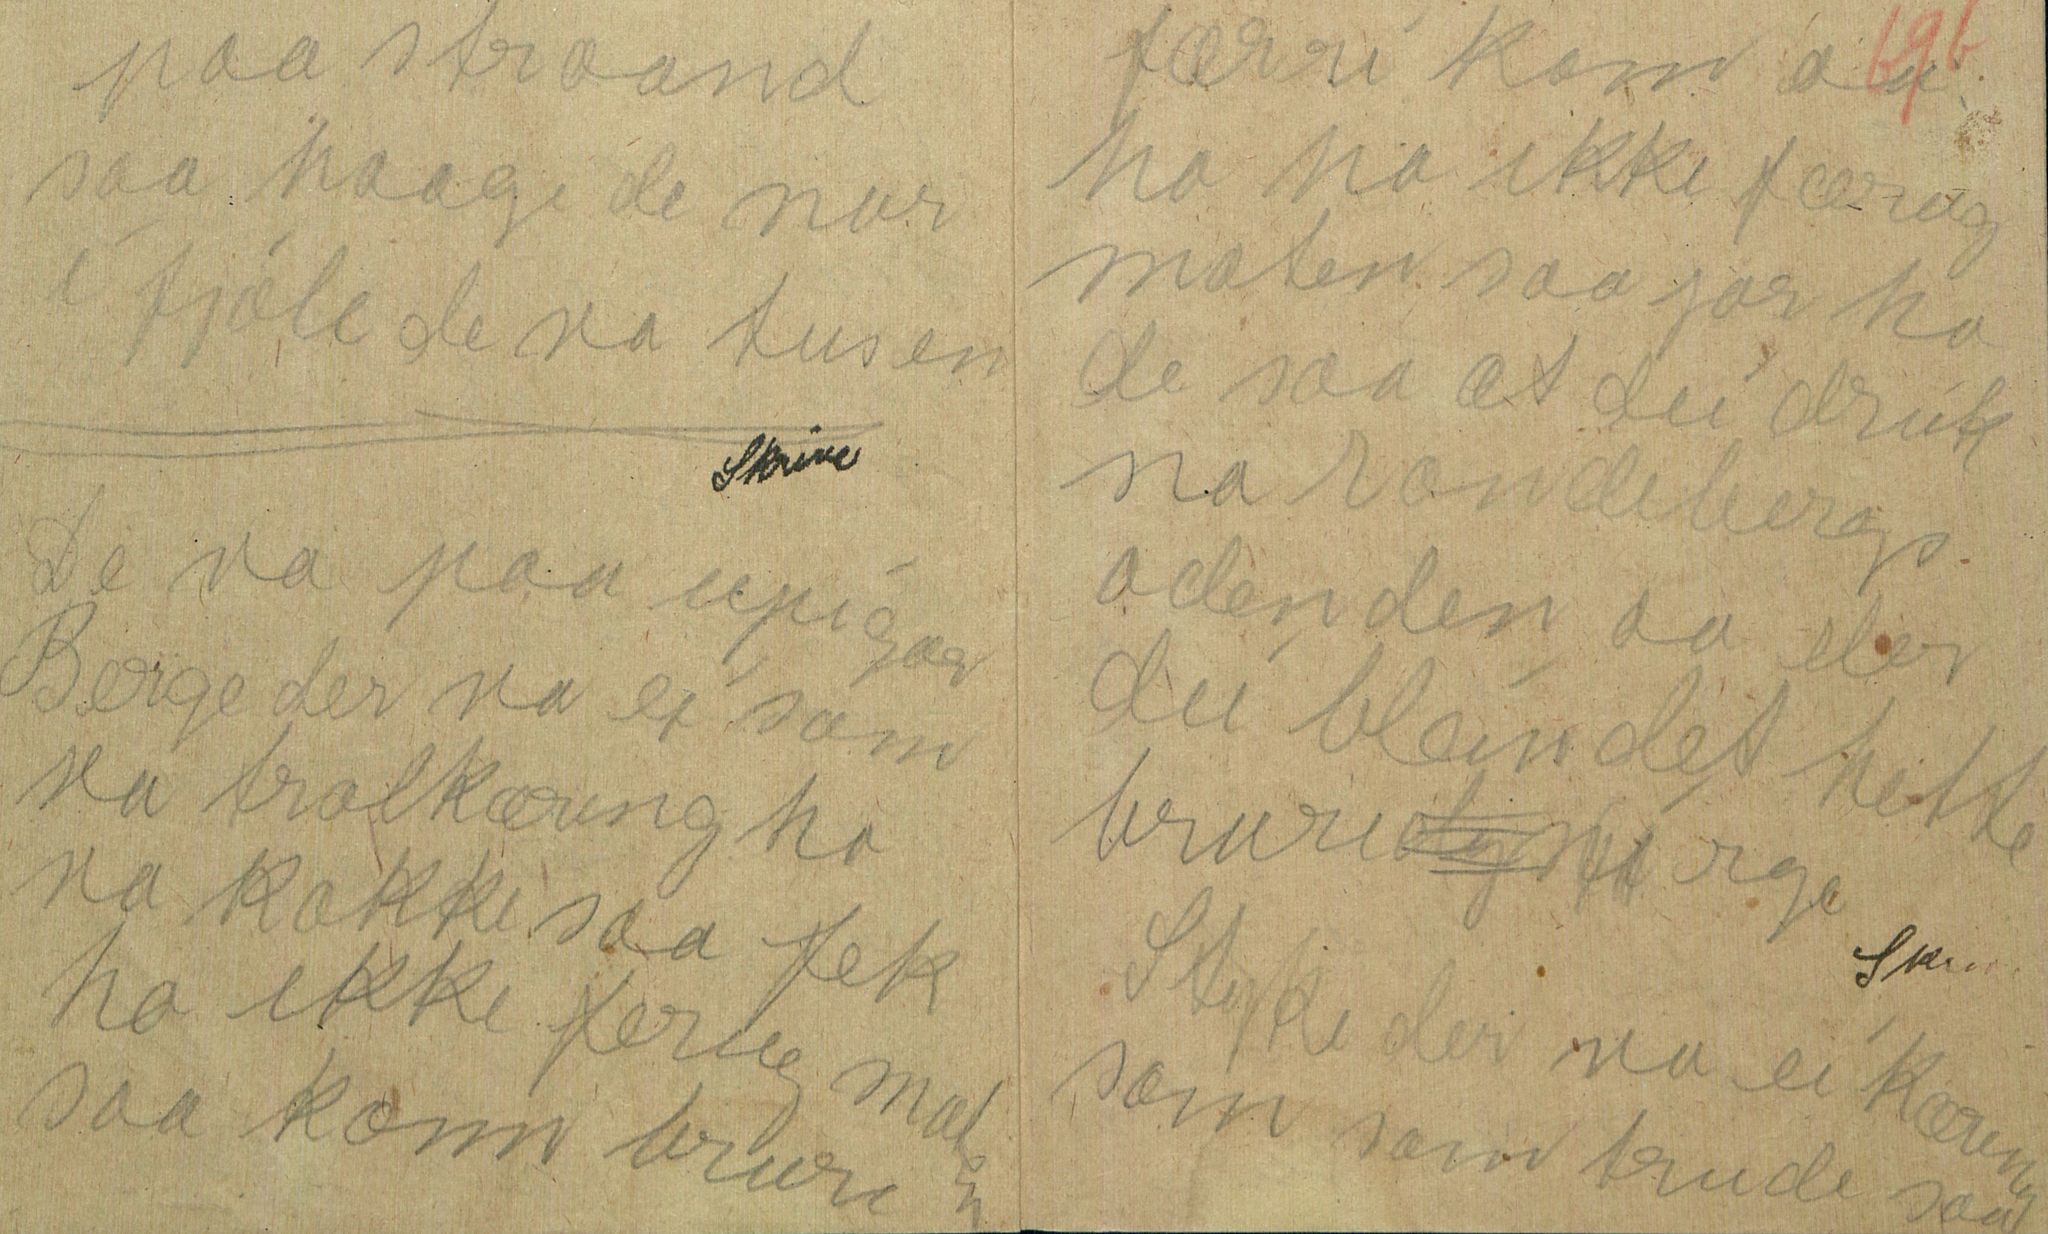 paa straand
saa haage de nar
i fjøle de va tusen
Skrive
De va paa upigar
Berge der va ei som
va trolkæring ho
va kokke saa fek
ho ikke ferug maten
saa komm brure
69b
færri kom au
ho ha ikke færug
maten saa jor ho
de saa at dei druk
na randebergs
odenden aa der
dei bleindet hette
brure
Skriv
Styke der va ei kæring
som som brude saa